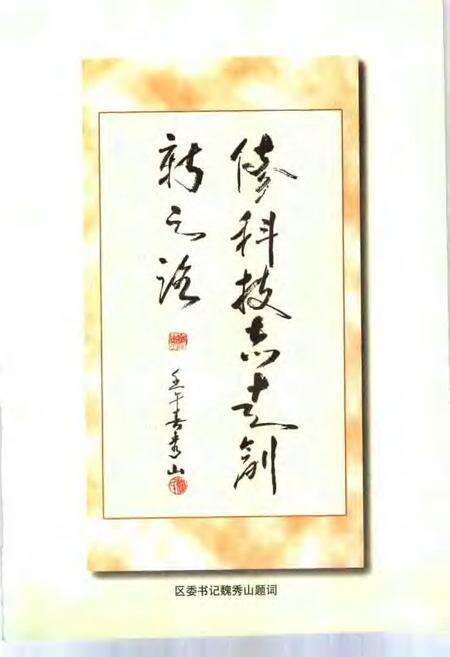 修科技志走创
新之路
壬午春秀山
区委书记魏秀山题词